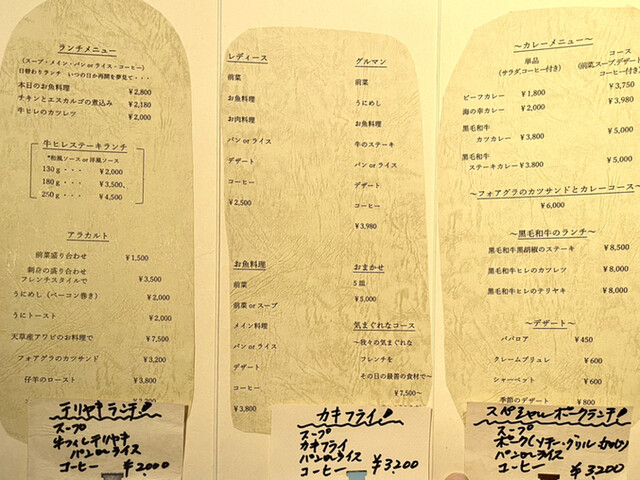 ランチメニュー
(スープ・メイン・パン or ライス・コーヒー)
日替わりランチ いつの日か再開を夢見て・・・
本日のお魚料理 ¥2,800
チキンとエスカルゴの煮込み ¥2,180
牛ヒレのカツレツ ¥2,000
牛ヒレステーキランチ
*和風ソース or 洋風ソース
130g・・・ ¥2,000
180g・・・ ¥3,500,
250g・・・ ¥4,500
アラカルト
前菜盛り合わせ ¥1,500
刺身の盛り合わせ
フレンチスタイルで ¥3,500
うにめし(ベーコン巻き) ¥2,000
うにトースト ¥2,000
天草産アワビのお料理で ¥7,500
フォアグラのカツサンド ¥3,200
仔羊のロースト ¥3,800
テリヤキランチ!
スープ
牛フィレテリヤキ
パン or ライス
コーヒー ¥2000
レディース
前菜
お魚料理
お肉料理
パン or ライス
デザート
コーヒー
¥2,500
グルマン
前菜
うにめし
お魚料理
牛のステーキ
パン or ライス
デザート
コーヒー
¥3,980
お魚料理
前菜
前菜 or スープ
メイン料理
パン or ライス
デザート
コーヒー
¥3,800
おまかせ
5皿
¥5,000
気まぐれなコース
～我々の気まぐれな
フレンチを
その日の最善の食材で～
¥7,500～
カキフライ!
スープ
カキフライ
パン or ライス
コーヒー ¥3200
～カレーメニュー～
単品
(サラダ、コーヒー付き)
コース
(前菜、スープ、デザート
コーヒー付き)
ビーフカレー ¥1,800 ¥3,750
海の幸カレー ¥2,000 ¥3,980
黒毛和牛
カツカレー ¥3,800 ¥5,000
黒毛和牛
ステーキカレー ¥3.800 ¥5,000
～フォアグラのカツサンドとカレーコース～
¥6,000
～黒毛和牛のランチ～
黒毛和牛黒胡椒のステーキ ¥8,500
黒毛和牛ヒレのカツレツ ¥8,000
黒毛和牛ヒレのテリヤキ ¥8,000
～デザート～
ババロア ¥450
クレームブリュレ ¥600
シャーベット ¥600
季節のデザート ¥800
スペシャルポークランチ!
スープ
ポーク(ソテー・グリル・カツレツ)
パン or ライス
コーヒー ¥3,200